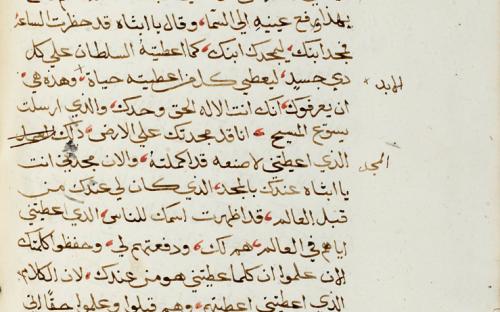 بهذا رفع عينيه الي السما، وقال يا ابتاه قد حضرت الساعة
مجد ابنك، ليمجدك ابنك، كما اعطيته السلطان علي كل
دي جسد، ليعطي كل من اعطيته حياة وهذه هي،
الابد
ان يعرفوك، انك انت الاله الحق وحدك، والذي ارسلت
يسوع المسيح، انا قد مجدتك علي الارض، ذلك العمل
الذي اعطيتني لاصنعه قد اكملته، والان مجدني انت
المجد
يا ابتاه عندك بالمجد، الذي كان لي عندك من
قبل العالم، قد اظهرت اسمك للناس، الذي اعطيتني
اياهم في العالم، هم لك، ودفعتهم لي، وحفظوا كلمتك
الان علموا ان كلما اعطيتني هو من عندك، لان الكلام
الذي اعطيتني اعطيتهم، وهم قبلوا وعلموا حقا اني